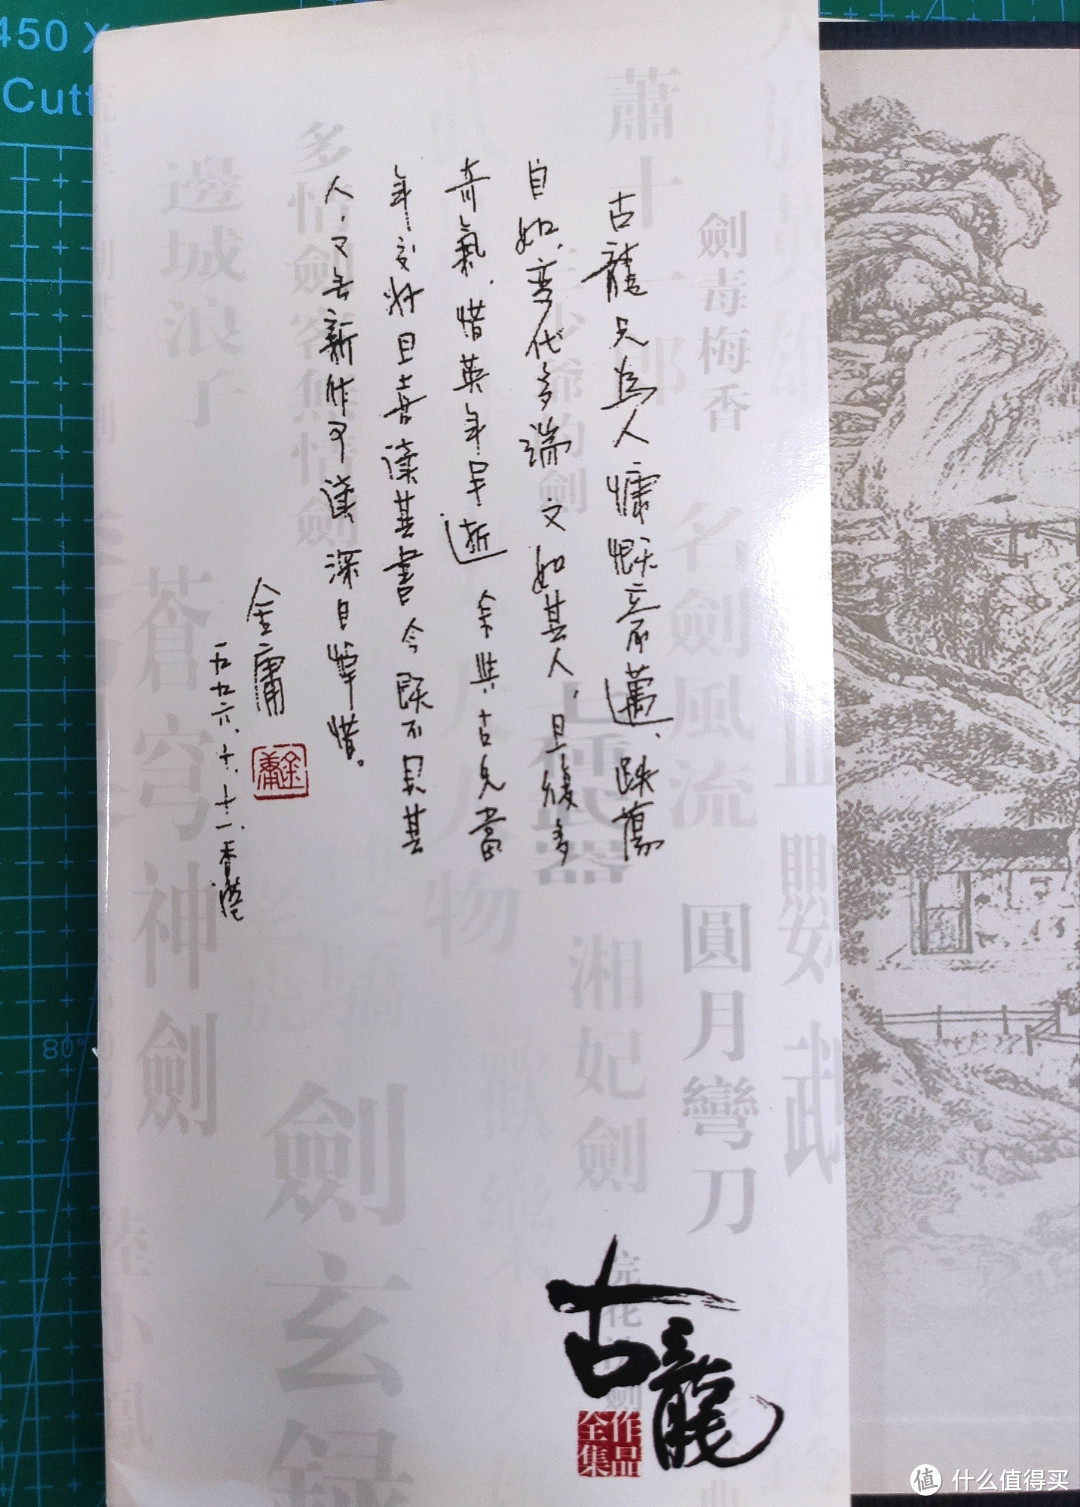 古龍兄為人慷慨豪邁、跌蕩
自如、變化多端、文如其人、且復多
奇氣。惜英年早逝、余與古兄當
年交好且喜讀其書今既不見其
人、又無新作可讀、深自悼惜。
金庸
金庸
一九九六、十、十一、香港
劍毒梅香
名劍風流
圓月彎刀
蕭十一郎
七種武器
湘妃劍
多情劍客無情劍
劍玄錄
邊城浪子
蒼穹神劍
陸小鳳
歡樂
古龍
作品全集
450 X
Cutt
80°
值 什么值得买